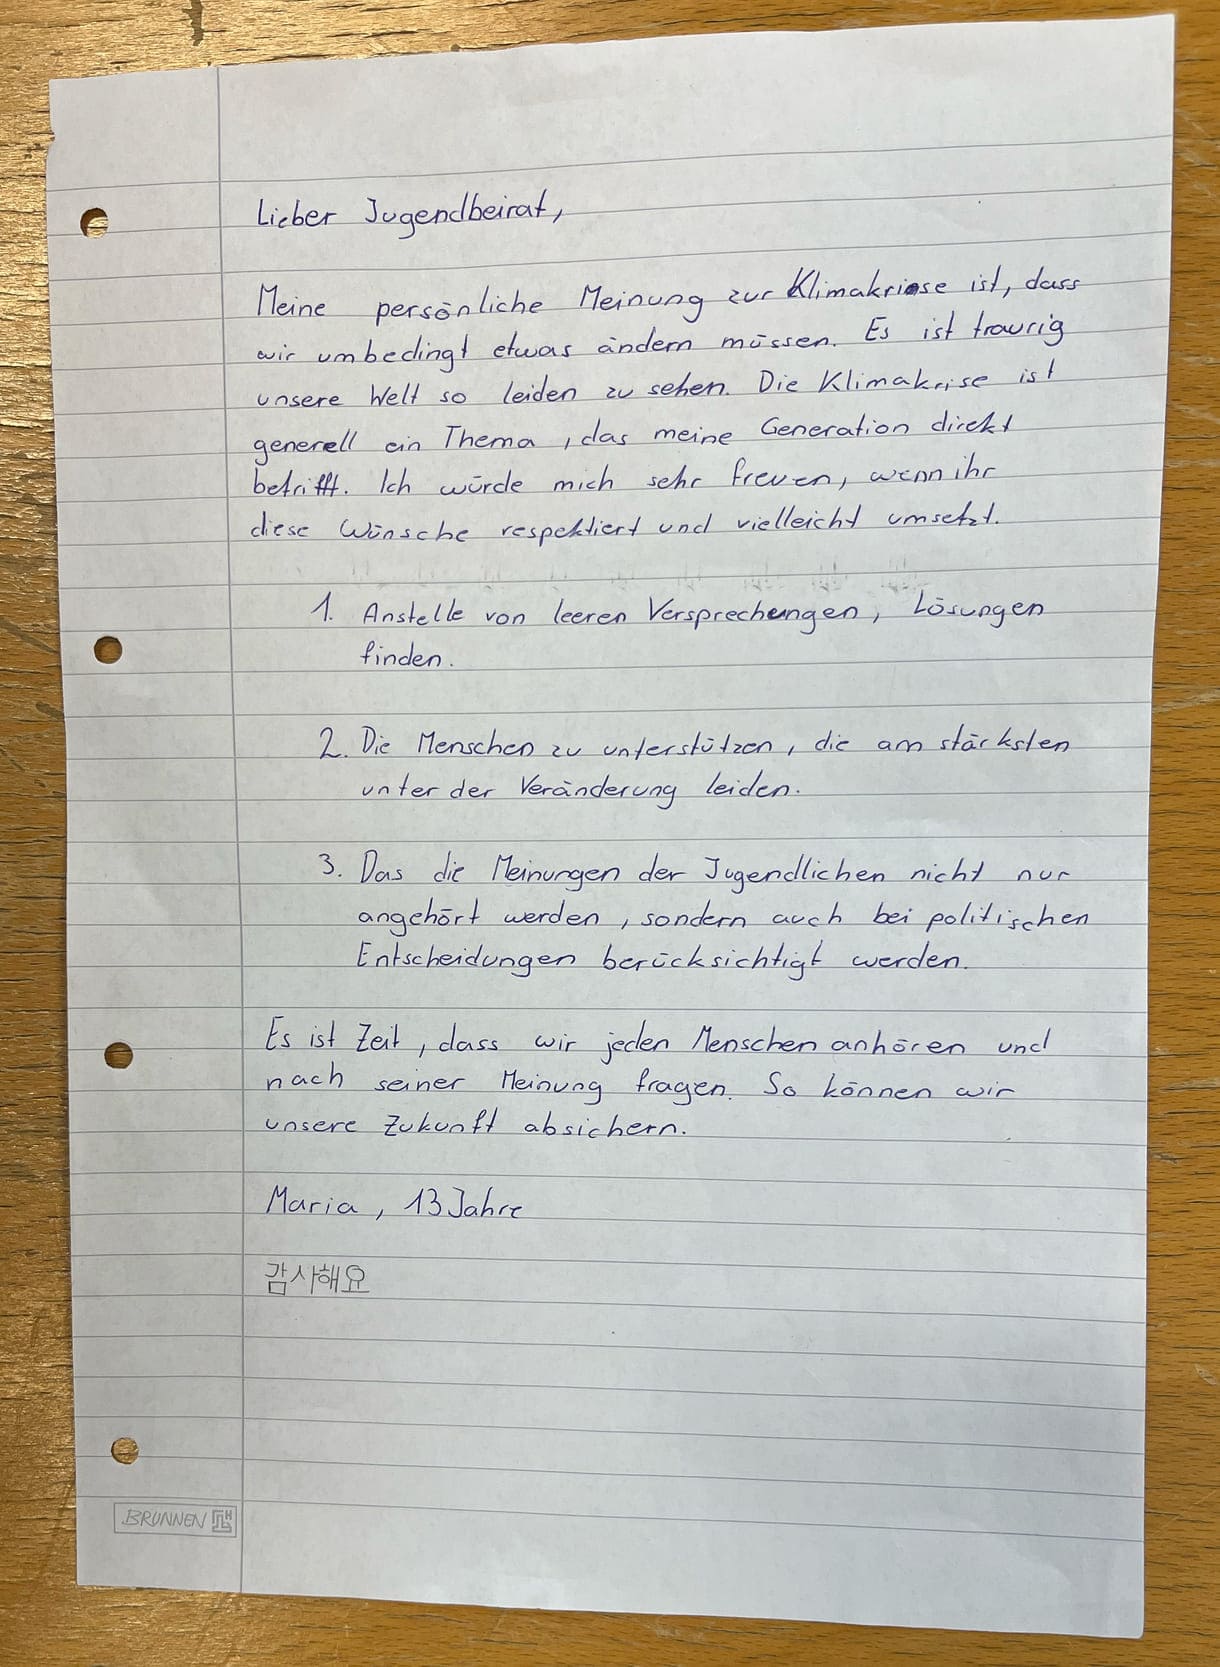 Lieber Jugendbeirat,
Meine persönliche Meinung zur Klimakriese ist, dass
wir umbedingt etwas ändern müssen. Es ist traurig
unsere Welt so leiden zu sehen. Die Klimakrise ist
generell ein Thema, das meine Generation direkt
betrifft. Ich würde mich sehr freuen, wenn ihr
diese Wünsche respektiert und vielleicht umsetzt.
1. Anstelle von leeren Versprechungen, Lösungen
finden.
2. Die Menschen zu unterstützen, die am stärksten
unter der Veränderung leiden.
3. Das die Meinungen der Jugendlichen nicht nur
angehört werden, sondern auch bei politischen
Entscheidungen berücksichtigt werden.
Es ist Zeit, dass wir jeden Menschen anhören und
nach seiner Meinung fragen. So können wir
unsere Zukunft absichern.
Maria, 13 Jahre
감사해요
BRUNNEN